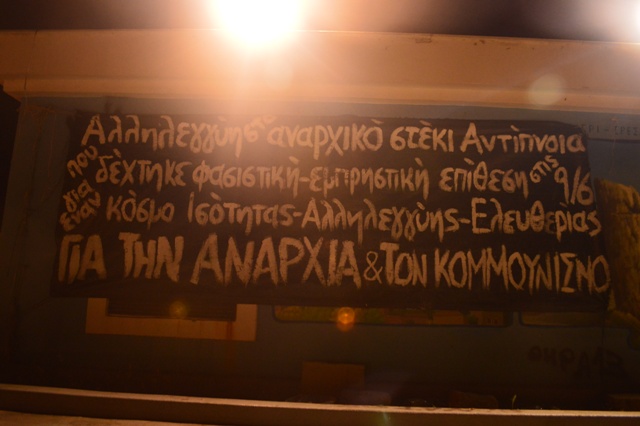 Αλληλεγγύη στο αναρχικό στέκι Αντίπνοια
που δέχτηκε φασιστική-εμπρηστική επίθεση στις 9/6
για έναν κόσμο ισότητας-Αλληλεγγύης-Ελευθερίας
ΓΙΑ ΤΗΝ ΑΝΑΡΧΙΑ & ΤΟΝ ΚΟΜΜΟΥΝΙΣΜΟ